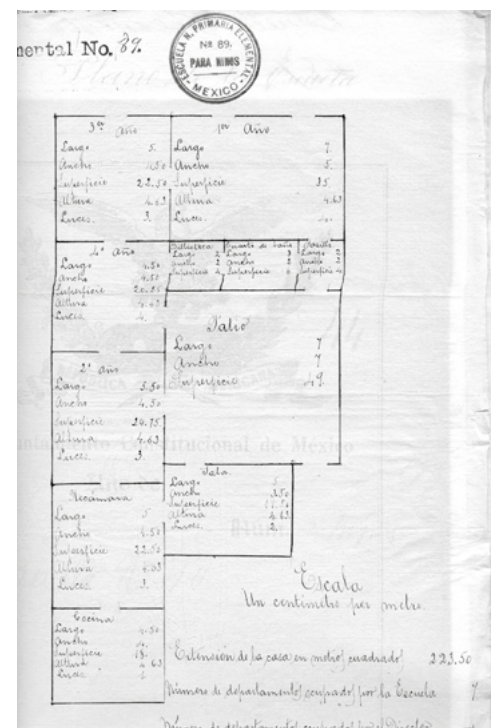 mental No. 89.
ESCUELA N. PRIMARIA ELEMENTAL
Nº 89.
PARA NIÑOS
MEXICO
3er Año
Largo 5.
Ancho 4.50
Superficie 22.50
Altura 4.63
Luces. 3.
1er Año
Largo 7.
Ancho 5.
Superficie 35
Altura 4.63
Luces.
4º Año
Largo 4.50
Ancho 4.50
Superficie 20.25
Altura 4.63
Luces 4.
Biblioteca
Largo 2
Ancho 2
Superficie 4.
Cuarto de baño
Largo 3
Ancho 2
Superficie 6
Pasillo
Largo 2
Ancho 2
Superficie 4
Patio
Largo 7
Ancho 7
Superficie 49.
2º Año
Largo 5.50
Ancho 4.50
Superficie 24.75
Altura 4.63
Luces. 3.
Sala.
Largo 5
Ancho 3.50
Superficie 17.50
Altura 4.63
Luces. 2.
Recámara
Largo 5
Ancho 4.50
Superficie 22.50
Altura 4.63
Luces 3.
Cocina
Largo 4.50
Ancho 4.
Superficie 18.
Altura 4.63
Luces 1
Escala
Un centimetro por metro.
Extensión de la casa en metros cuadrados 223.50
Número de departamentos ocupados por la Escuela 7
Número de departamentos ocupados por el Director
untamiento Constitucional de México